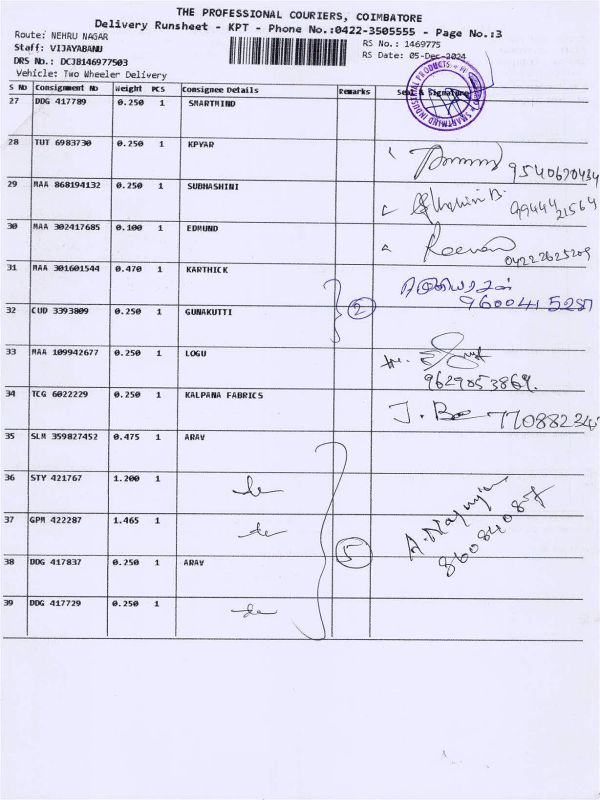 THE PROFESSIONAL COURIERS, COIMBATORE
Delivery Runsheet - KPT - Phone No.:0422-3505555 - Page No.:3
Route: NEHRU NAGAR
RS No.: 1469775
Staff: VIJAYABANU
RS Date: 05-Dec-2024
DRS No.: DCJB146977503
Vehicle: Two Wheeler Delivery
S No Consignment No Weight PCS Consignee Details Remarks Seal & Signature
SMARTMIND INDUSTRIAL PRODUCTS
27 DDG 417789 0.250 1 SMARTMIND
28 TUT 6983730 0.250 1 KPYAR
9540670434
29 MAA 868194132 0.250 1 SUBHASHINI
99444 21564
30 MAA 302417685 0.100 1 EDMUND
04222625209
31 MAA 301601544 0.470 1 KARTHICK
9600415287
32 CUD 3393809 0.250 1 GUNAKUTTI
2
33 MAA 109942677 0.250 1 LOGU
9629053869.
34 TCG 6022229 0.250 1 KALPANA FABRICS
35 SLM 359827452 0.475 1 ARAV
36 STY 421767 1.200 1
37 GPM 422287 1.465 1
5
38 DDG 417837 0.250 1 ARAV
39 DDG 417729 0.250 1